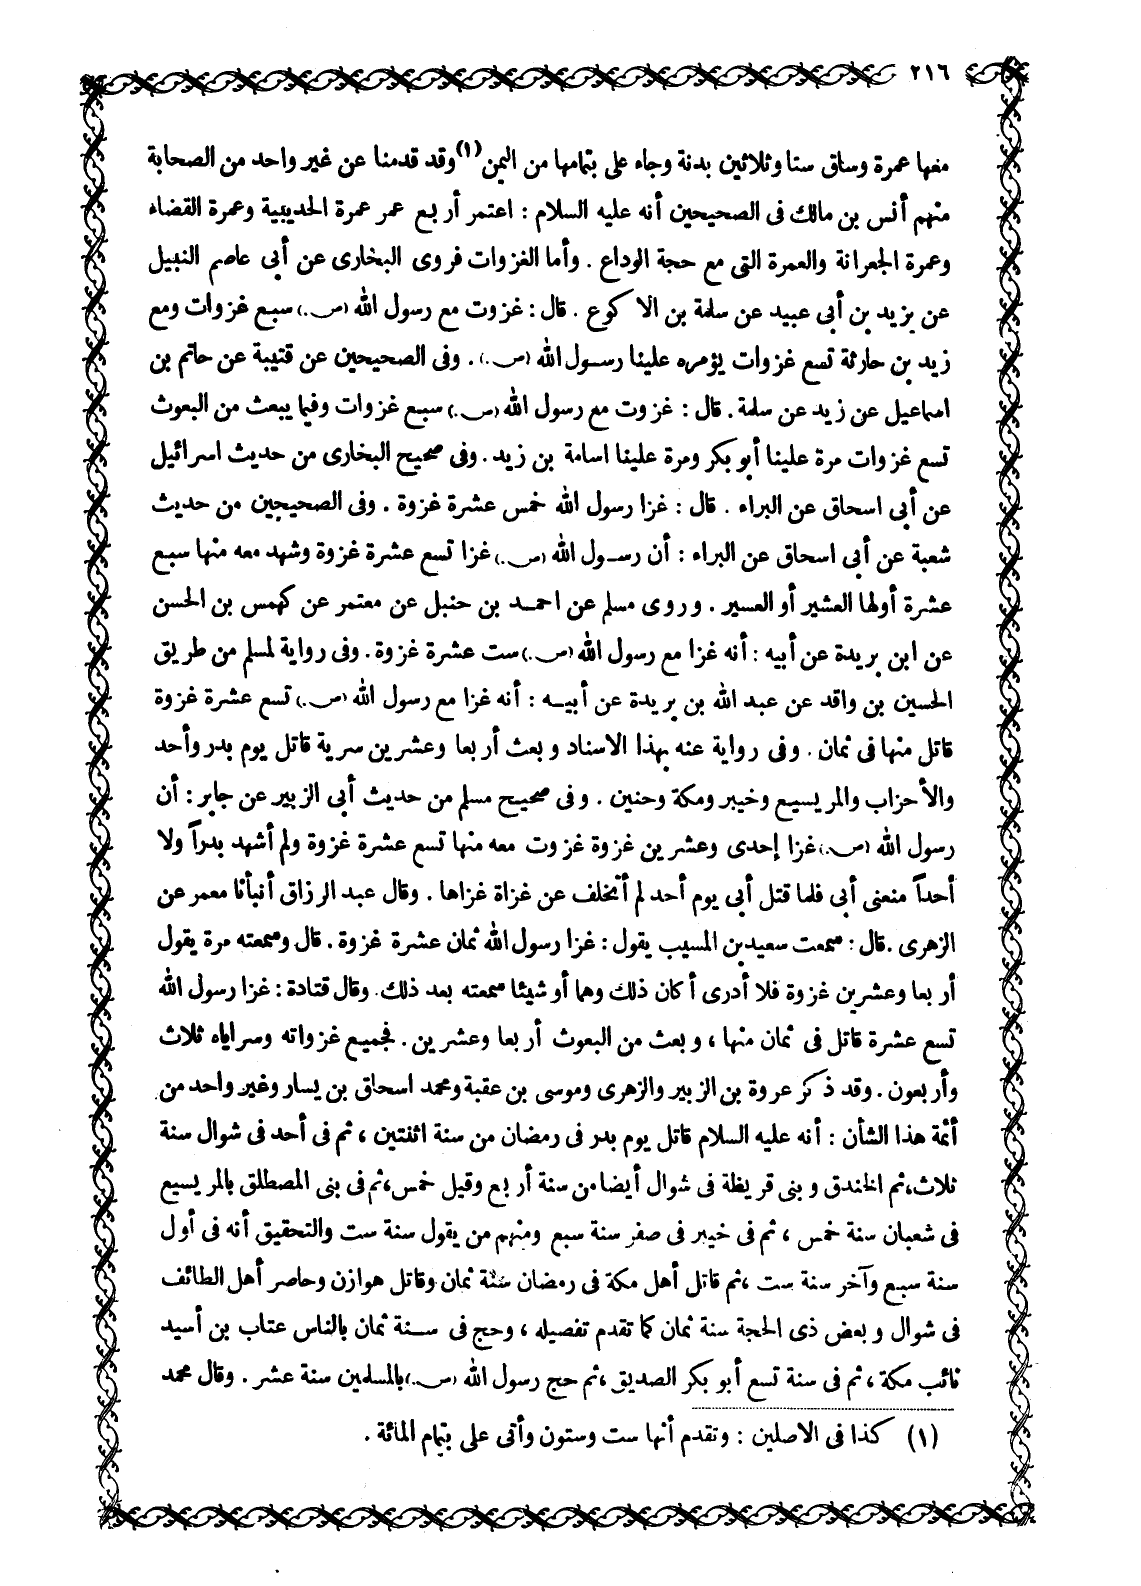 ٢١٦
معها عمرة وساق ستا وثلاثين بدنة وجاء على بتمامها من اليمن (١) وقد قدمنا عن غير واحد من الصحابة
منهم أنس بن مالك فى الصحيحين أنه عليه السلام : اعتمر أربع عمر عمرة الحديبية وعمرة القضاء
وعمرة الجعرانة والعمرة التى مع حجة الوداع . وأما الغزوات فروى البخارى عن أبى عاصم النبيل
عن يزيد بن أبى عبيد عن سلمة بن الاكوع . قال : غزوت مع رسول الله (ص.) سبع غزوات ومع
زيد بن حارثة تسع غزوات يؤمره علينا رسول الله (ص.) . وفى الصحيحين عن قتيبة عن حاتم بن
اسماعيل عن زيد عن سلمة . قال : غزوت مع رسول الله (ص.) سبع غزوات وفيما يبعث من البعوث
تسع غزوات مرة علينا أبو بكر ومرة علينا اسامة بن زيد . وفى صحيح البخارى من حديث اسرائيل
عن أبى اسحاق عن البراء . قال : غزا رسول الله خمس عشرة غزوة . وفى الصحيحين من حديث
شعبة عن أبى اسحاق عن البراء : أن رسول الله (ص.) غزا تسع عشرة غزوة وشهد معه منها سبع
عشرة أولها العشير أو العسير . وروى مسلم عن احمد بن حنبل عن معتمر عن كهمس بن الحسن
عن ابن بريدة عن أبيه : أنه غزا مع رسول الله (ص.) ست عشرة غزوة . وفى رواية لمسلم من طريق
الحسين بن واقد عن عبد الله بن بريدة عن أبيه : أنه غزا مع رسول الله (ص.) تسع عشرة غزوة
قاتل منها فى ثمان . وفى رواية عنه بهذا الاسناد وبعث أربعا وعشرين سرية قاتل يوم بدر وأحد
والأحزاب والمريسيع وخيبر ومكة وحنين . وفى صحيح مسلم من حديث أبى الزبير عن جابر : أن
رسول الله (ص.) غزا إحدى وعشرين غزوة غزوت معه منها تسع عشرة غزوة ولم أشهد بدراً ولا
أحداً منعنى أبى فلما قتل أبى يوم أحد لم أتخلف عن غزاة غزاها . وقال عبد الرزاق أنبأنا معمر عن
الزهرى . قال : سمعت سعيد بن المسيب يقول : غزا رسول الله ثمان عشرة غزوة . قال وسمعته مرة يقول
أربعا وعشرين غزوة فلا أدرى أكان ذلك وهما أو شيئا سمعته بعد ذلك . وقال قتادة : غزا رسول الله
تسع عشرة قاتل فى ثمان منها ، وبعث من البعوث أربعا وعشرين . فجميع غزواته وسراياه ثلاث
وأربعون . وقد ذكر عروة بن الزبير والزهرى وموسى بن عقبة ومحمد اسحاق بن يسار وغير واحد من
أئمة هذا الشأن : أنه عليه السلام قاتل يوم بدر فى رمضان من سنة اثنتين ، ثم فى أحد فى شوال سنة
ثلاث ، ثم الخندق وبنى قريظة فى شوال أيضا من سنة أربع وقيل خمس ، ثم فى بنى المصطلق بالمريسيع
فى شعبان سنة خمس ، ثم فى خيبر فى صفر سنة سبع ومنهم من يقول سنة ست والتحقيق أنه فى أول
سنة سبع وآخر سنة ست ، ثم قاتل أهل مكة فى رمضان سنة ثمان وقاتل هوازن وحاصر أهل الطائف
فى شوال وبعض ذى الحجة سنة ثمان كما تقدم تفصيله ، وحج فى سنة ثمان بالناس عتاب بن أسيد
نائب مكة ، ثم فى سنة تسع أبو بكر الصديق ، ثم حج رسول الله (ص.) بالمسلمين سنة عشر . وقال محمد
(١) كذا فى الاصلين : وتقدم أنها ست وستون وأتى على بتمام المائة .